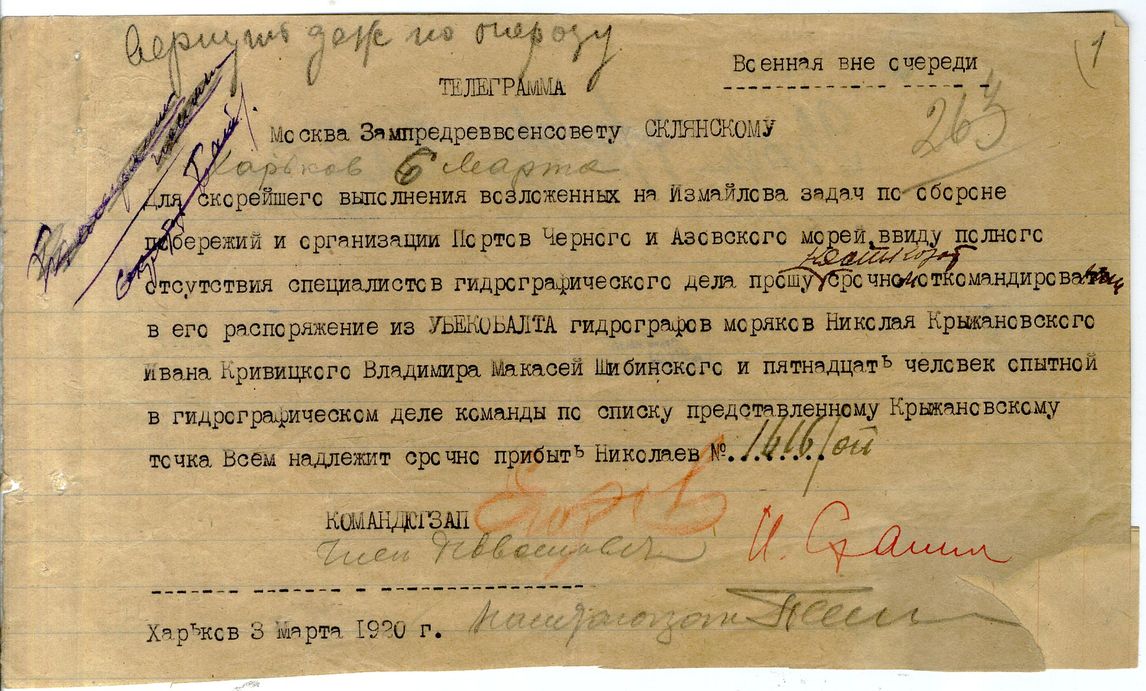 Вернуть даж по опероду
Военная вне очереди
(1
ТЕЛЕГРАММА
263
Москва Зампредреввоенсовету СКЛЯНСКОМУ
Харьков 6 Марта
Для скорейшего выполнения возложенных на Измайлова задач по обороне
побережий и организации Портов Черного и Азовского морей, ввиду полного
отсутствия специалистов гидрографического дела прошу срочно откомандировать
в его распоряжение из УБЕКОБАЛТА гидрографов моряков Николая Крыжановского
Ивана Кривицкого Владимира Макасей Шибинского и пятнадцатъ человек спытной
в гидрографическом деле команды по списку представленному Крыжановскому
точка Всем надлежит срочно прибытъ Николаев №.1616/оп
КОМАНДЮГЗАП
Член Реввоенсовета И. Сталин
Харьков 3 Марта 1920 г. Наштаюгозап